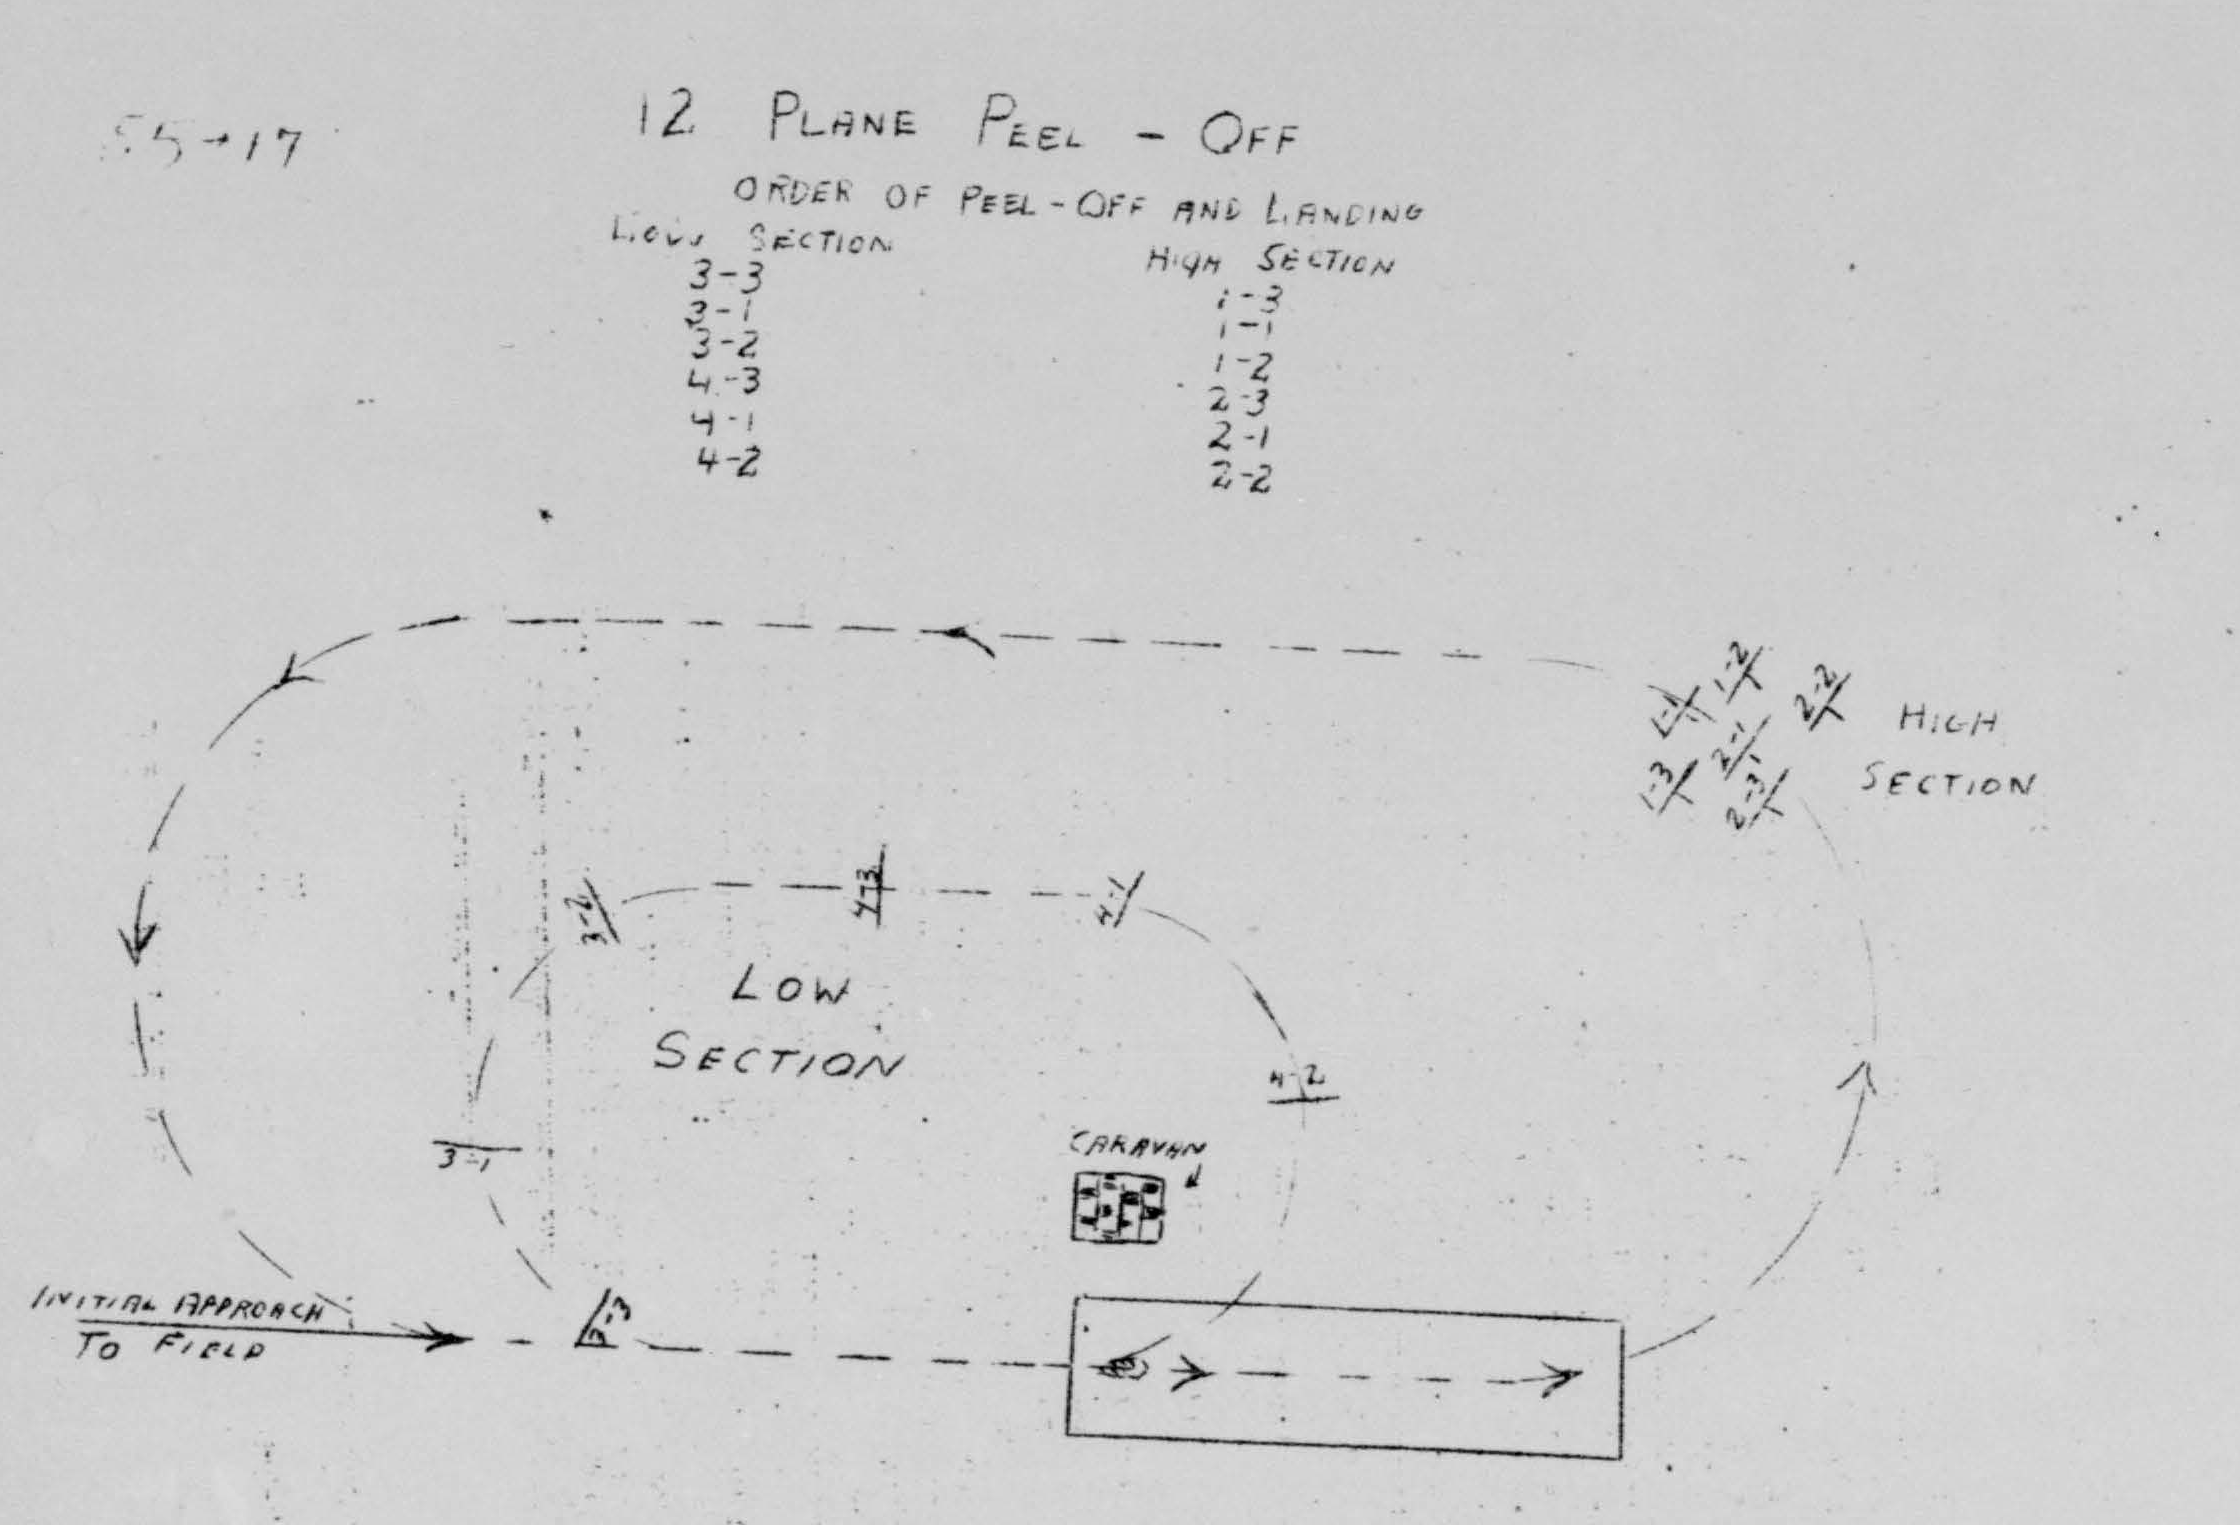 55-17
12 PLANE PEEL - OFF
ORDER OF PEEL-OFF AND LANDING
LOW SECTION
3-3
3-1
3-2
4-3
4-1
4-2
HIGH SECTION
1-3
1-1
1-2
2-3
2-1
2-2
1-2
1-1
2-2
2-1
1-3
2-3
HIGH
SECTION
3-2
4-3
4-1
LOW
SECTION
4-2
3-1
CARAVAN
3-3
INITIAL APPROACH
TO FIELD